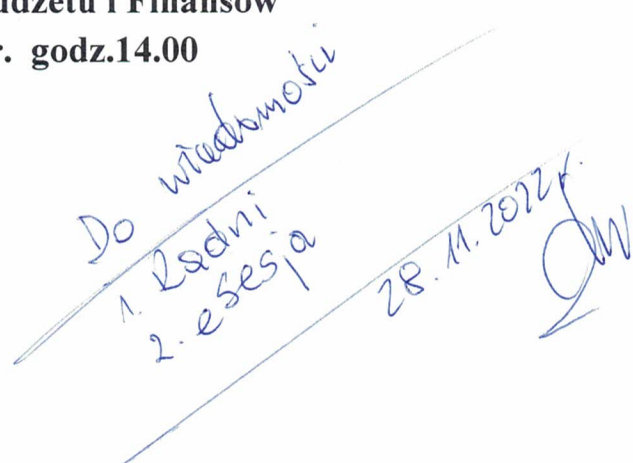 udżetu i Finansów
r. godz.14.00
Do wiadomości
1. Radni
2. esesja
28.11.2022r.